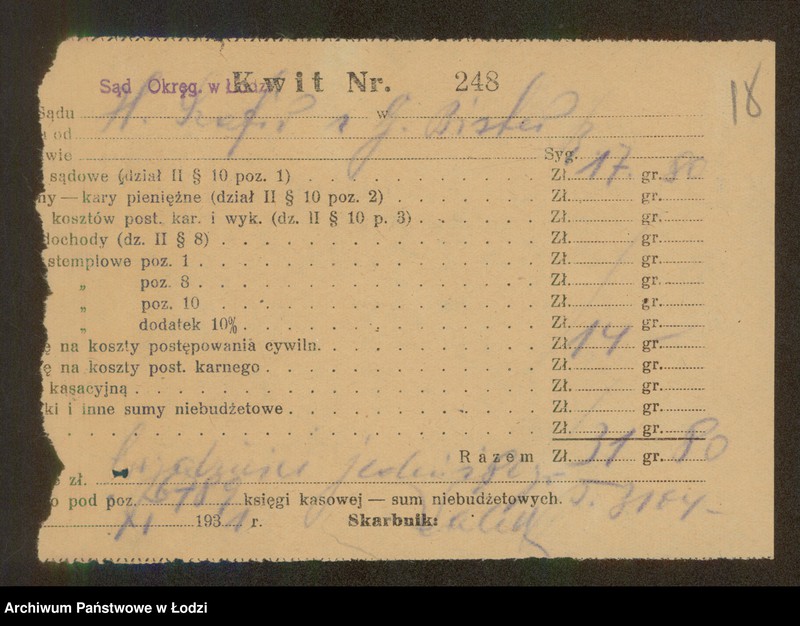 18
Sąd Okręg. w Łodzi Kwit Nr. 248
Sądu w
od
wie Syg.
sądowe (dział II § 10 poz. 1) Zł. 17. gr. 80
ny — kary pieniężne (dział II § 10 poz. 2) Zł. gr.
kosztów post. kar. i wyk. (dz. II § 10 p. 3) Zł. gr.
dochody (dz. II § 8) Zł. gr.
stemplowe poz. 1 Zł. gr.
„ poz. 8 Zł. gr.
„ poz. 10 Zł. gr.
„ dodatek 10% Zł. gr.
ę na koszty postępowania cywiln. Zł. 14 - gr.
ę na koszty post. karnego Zł. gr.
kasacyjną Zł. gr.
ki i inne sumy niebudżetowe Zł. gr.
Zł. gr.
Razem Zł. 31 gr. 80
zł.
o pod poz. księgi kasowej — sum niebudżetowych.
193 r. Skarbnik:
Archiwum Państwowe w Łodzi